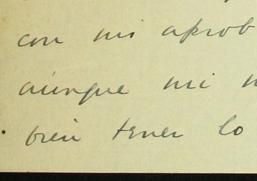 con mi aprob
aúnque mi
bién tener lo